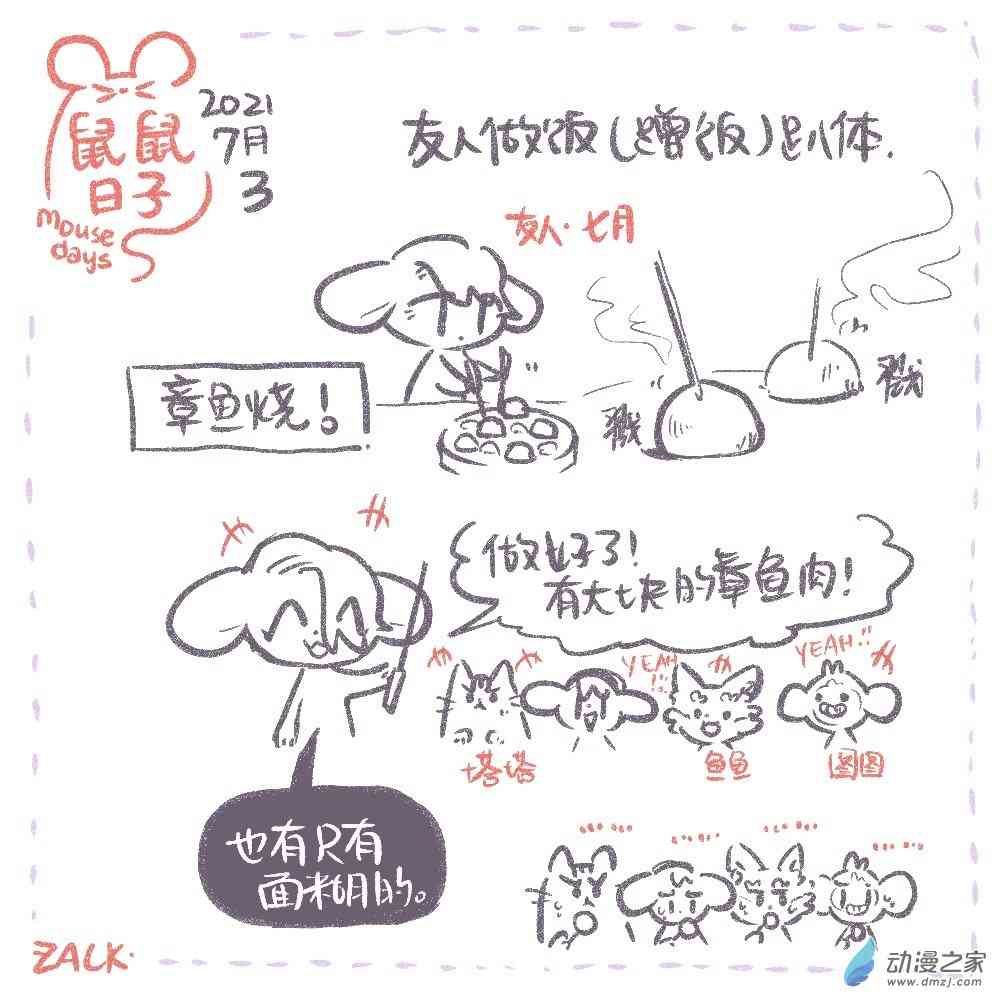 鼠鼠
日子
mouse
days
2021
7月
3
友人做饭(蹭饭)趴体.
友人·七月
章鱼烧!
戳
戳
做好了!
有大块的章鱼肉!
YEAH!!
YEAH!!
塔塔
鱼鱼
图图
也有只有
面糊的。
ZALK.
动漫之家
www.dmzj.com